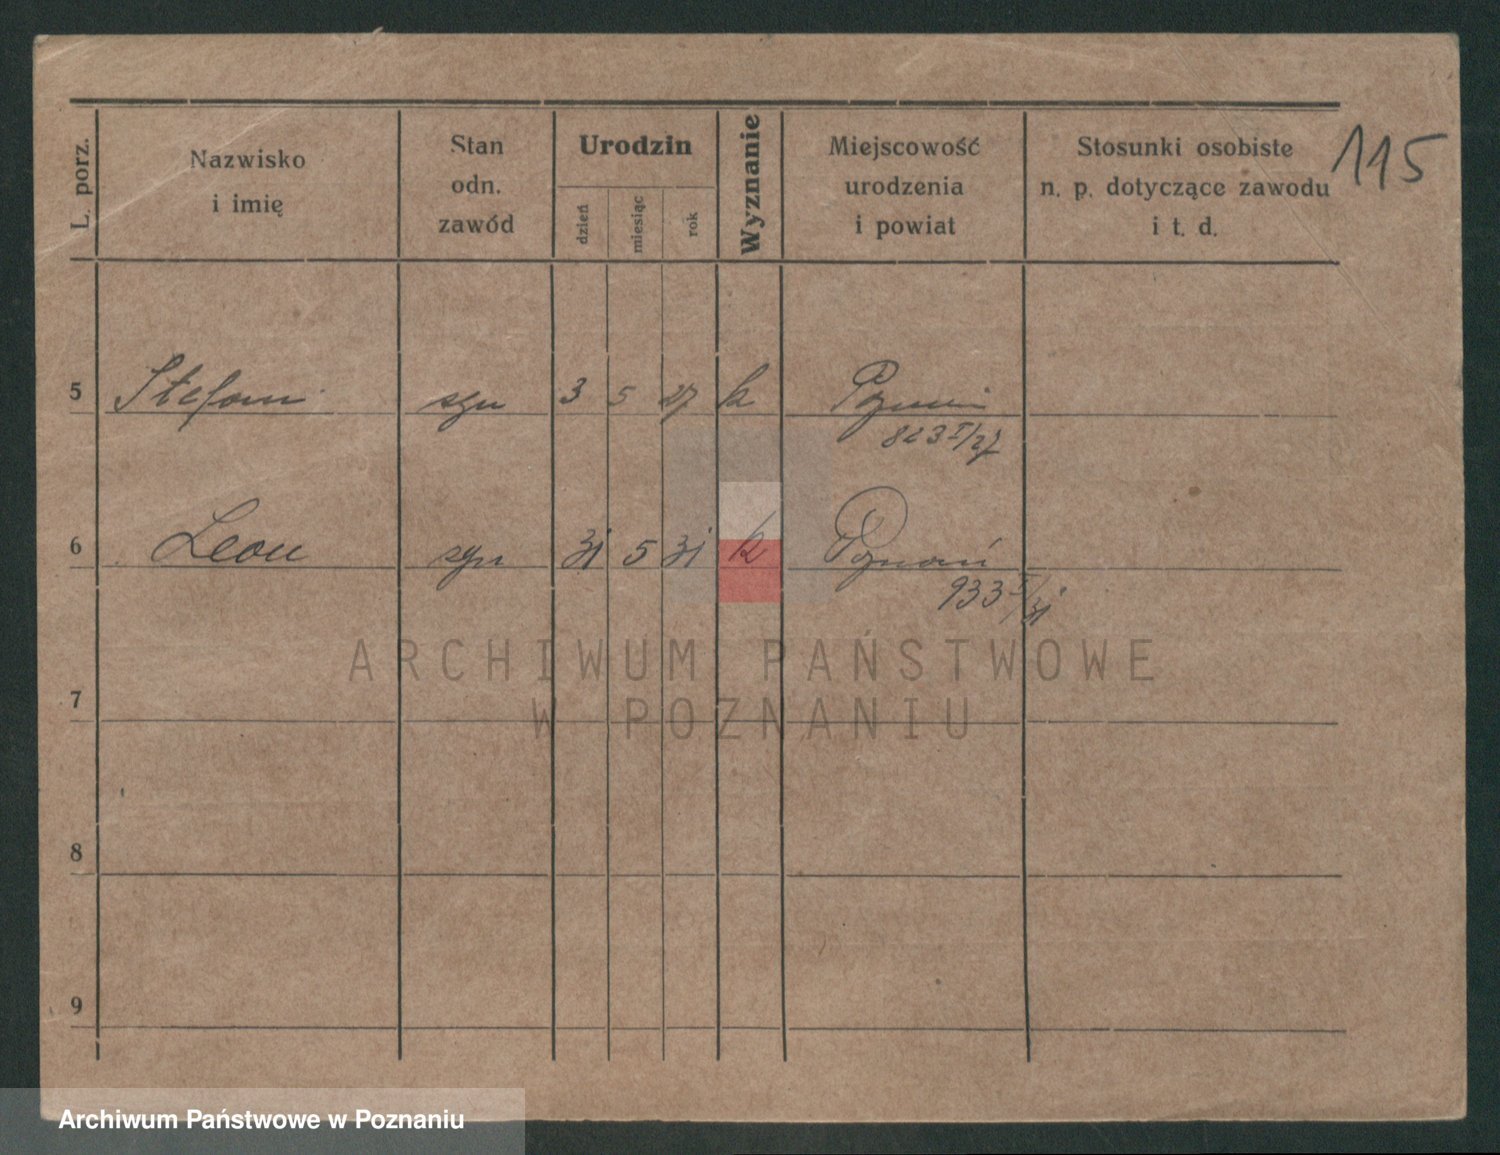 115
L. porz.
Nazwisko
i imię
Stan
odn.
zawód
Urodzin
dzień
miesiąc
rok
Wyznanie
Miejscowość
urodzenia
i powiat
Stosunki osobiste
n. p. dotyczące zawodu
i t. d.
5 Stefan syn 3 5 27 k Poznań
823 I/27
6 Leon syn 31 5 31 k Poznań
933 I/31
7
8
9
ARCHIWUM PAŃSTWOWE
W POZNANIU
Archiwum Państwowe w Poznaniu